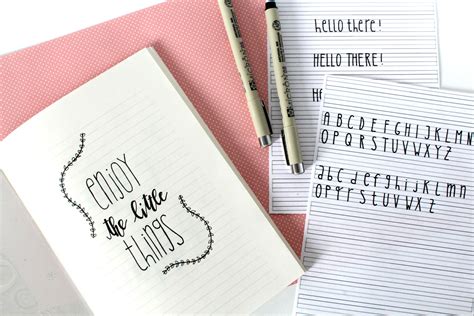 enjoy
the little
things
hello there!
HELLO THERE!
ABCDEFGHIJKLMN
OPQRSTUVWXYZ
abcdefghijklmn
opqrstuvwxyz